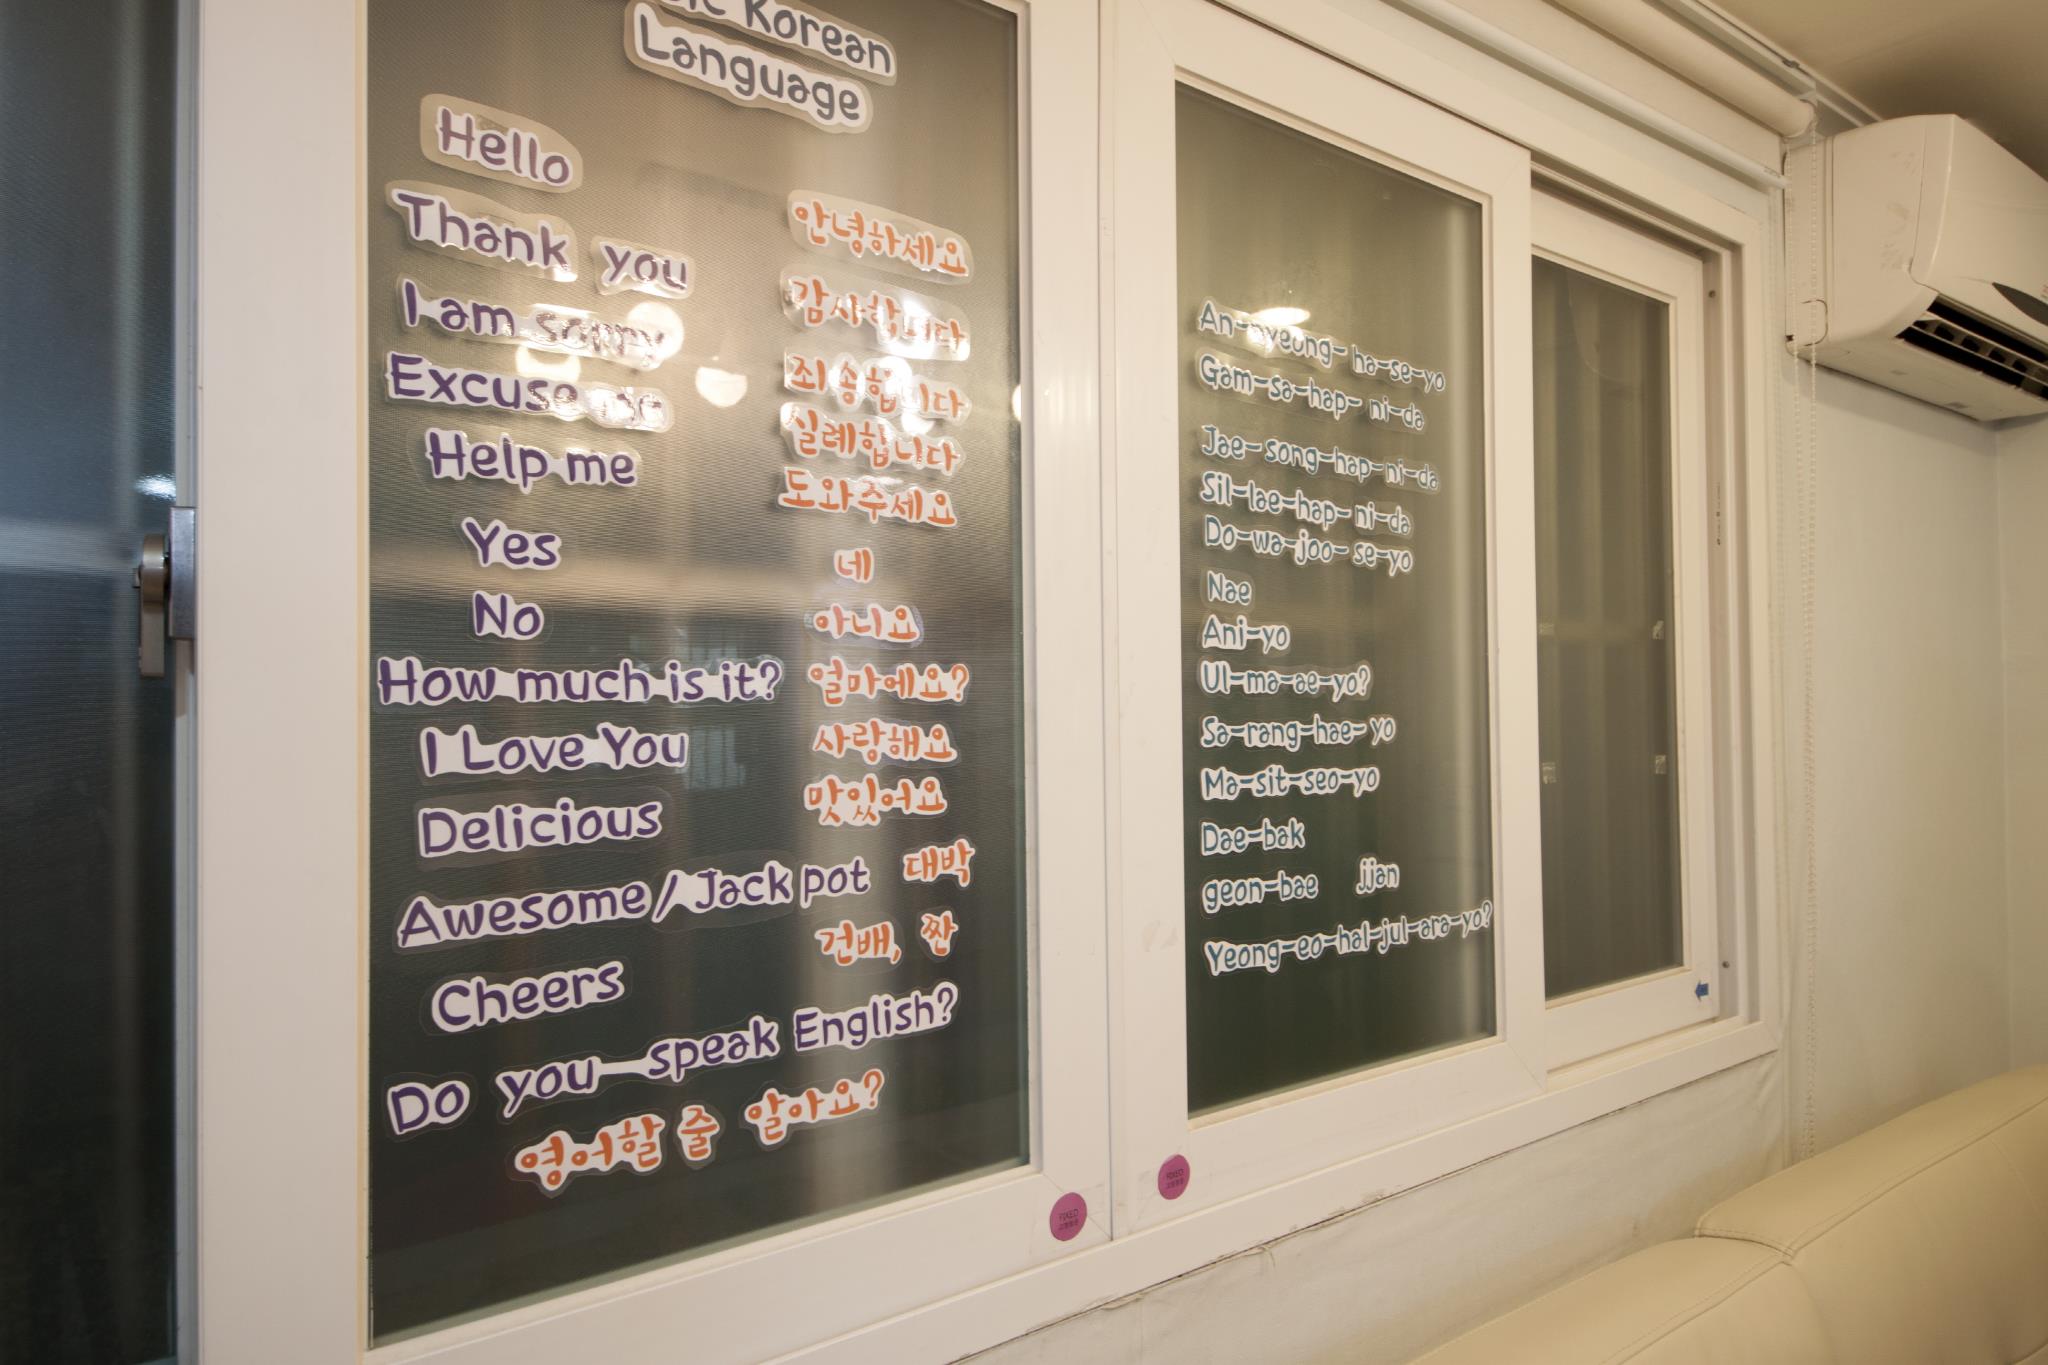 Korean
Language
Hello
안녕하세요
An-nyeong-ha-se-yo
Thank you
감사합니다
Gam-sa-hap-ni-da
I am sorry
죄송합니다
Jae-song-hap-ni-da
Excuse me
실례합니다
Sil-lae-hap-ni-da
Help me
도와주세요
Do-wa-joo-se-yo
Yes
네
Nae
No
아니요
Ani-yo
How much is it?
얼마에요?
Ul-ma-ae-yo?
I Love You
사랑해요
Sa-rang-hae-yo
Delicious
맛있어요
Ma-sit-seo-yo
Awesome/Jackpot
대박
Dae-bak
Cheers
건배, 짠
geon-bae jjan
Do you speak English?
영어할 줄 알아요?
Yeong-eo-hal-jul-ara-yo?
FIXED
FIXED